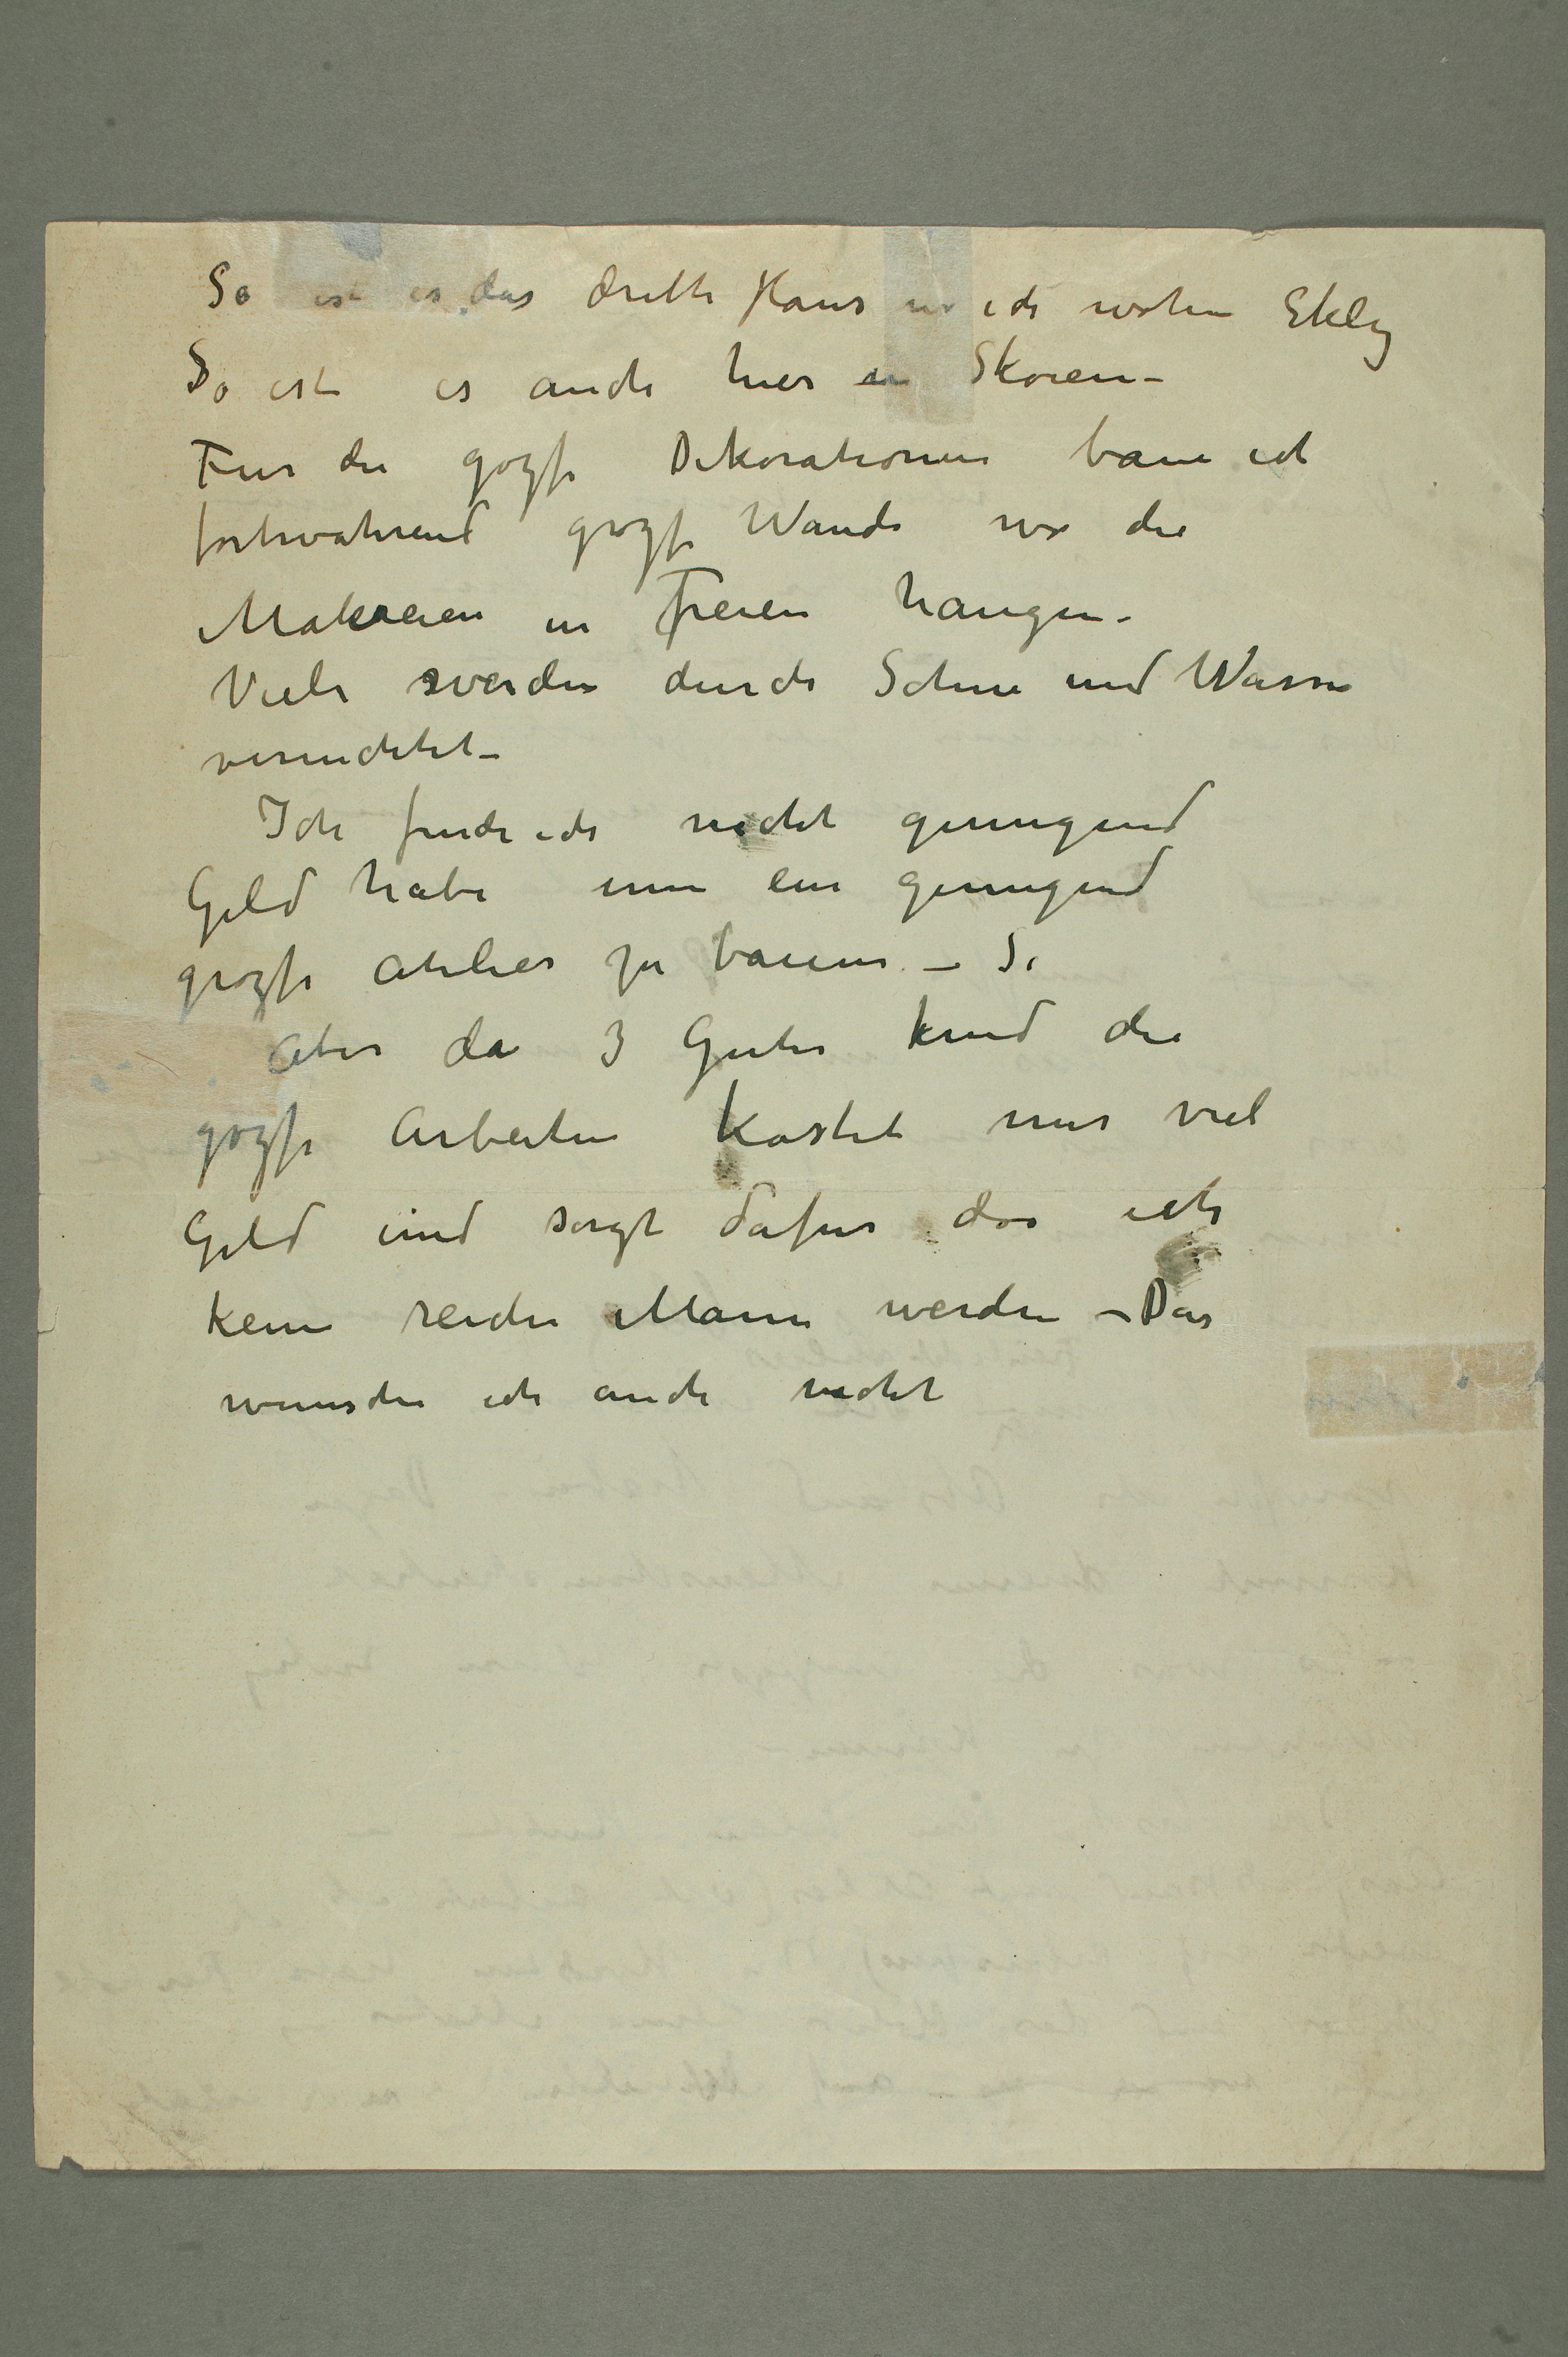 So ist es das dritte Haus wo ich wohne Ekely
So ist es auch hier in Skøien –
Fur die grozse Dekorationen baue ich
fortwahrend grozse Wande wo die
Malereien in Freien hangen –
Viele werden durch Schne und Wasser
vernichtet –
Ich finde ich nicht genugend
Geld habe um ein genugend
grozse Atelier zu bauen – Si
Aber da 3 Guter und die
grozse Arbeiten kostet mir viel
Geld und sorgt dafur das ich
kein reicher Mann werden – Das
wunsche ich auch nicht